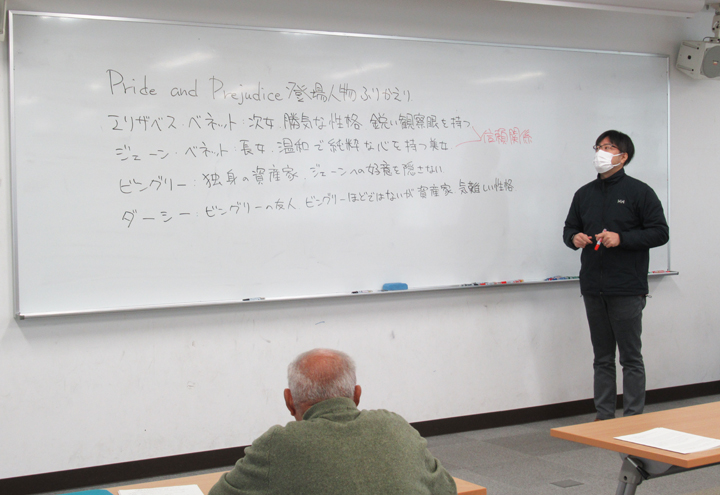 Pride and Prejudice 登場人物ふりかえり
エリザベス・ベネット：次女 勝気な性格 鋭い観察眼を持つ
ジェーン・ベネット：長女 温和で純粋な心を持つ美女
信頼関係
ビングリー：独身の資産家 ジェーンへの好意を隠さない
ダーシー：ビングリーの友人 ビングリーほどではないが資産家 気難しい性格
HH